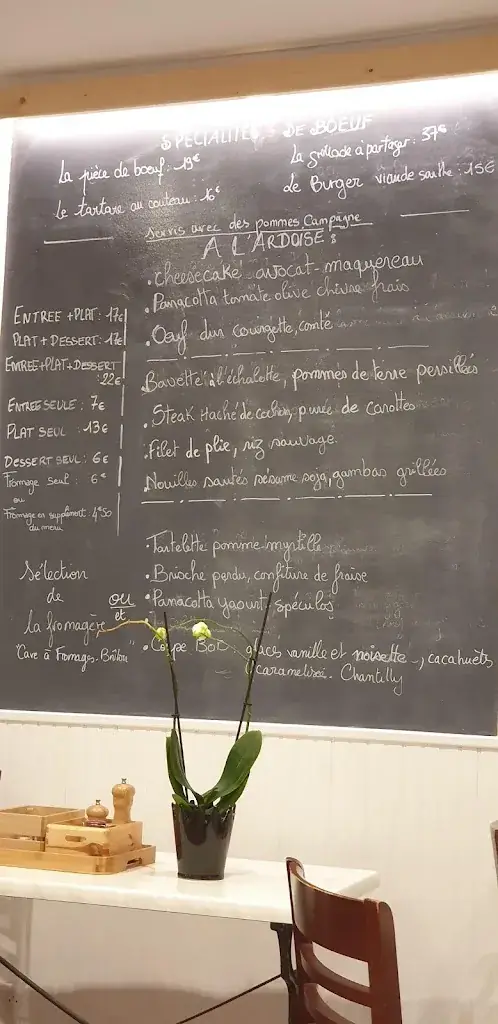 SPECIALITES DE BOEUF
La pièce de boeuf : 19€
La grillade à partager : 37€
Le tartare au couteau : 16€
Le Burger viande salthe : 15€
servis avec des pommes Campagne
A L'ARDOISE :
. cheesecake avocat - maquereau
. Panacotta tomate olive chèvre frais
. Oeuf dur courgette, comté
ENTREE + PLAT : 17€
PLAT + DESSERT : 17€
ENTREE+PLAT+DESSERT
: 22€
ENTREE SEULE : 7€
PLAT SEUL : 13€
DESSERT SEUL : 6€
Fromage seul : 6€
ou
Fromage en supplément : 4€50
du menu
. Bavette à l'échalotte, pommes de terre persillées
. Steak Haché de cochon, purée de carottes
. Filet de plie, riz sauvage.
. Nouilles sautés sésame soja, gambas grillées
. Tartelette pomme-myrtille
. Brioche perdu, confiture de fraise
. Panacotta yaourt - spéculos
. Coupe BoC glaces vanille et noisette, cacahuèts
caramelisées. Chantilly
Sélection
de
la fromagère
"Cave à Fromages - Briton"
ou
et